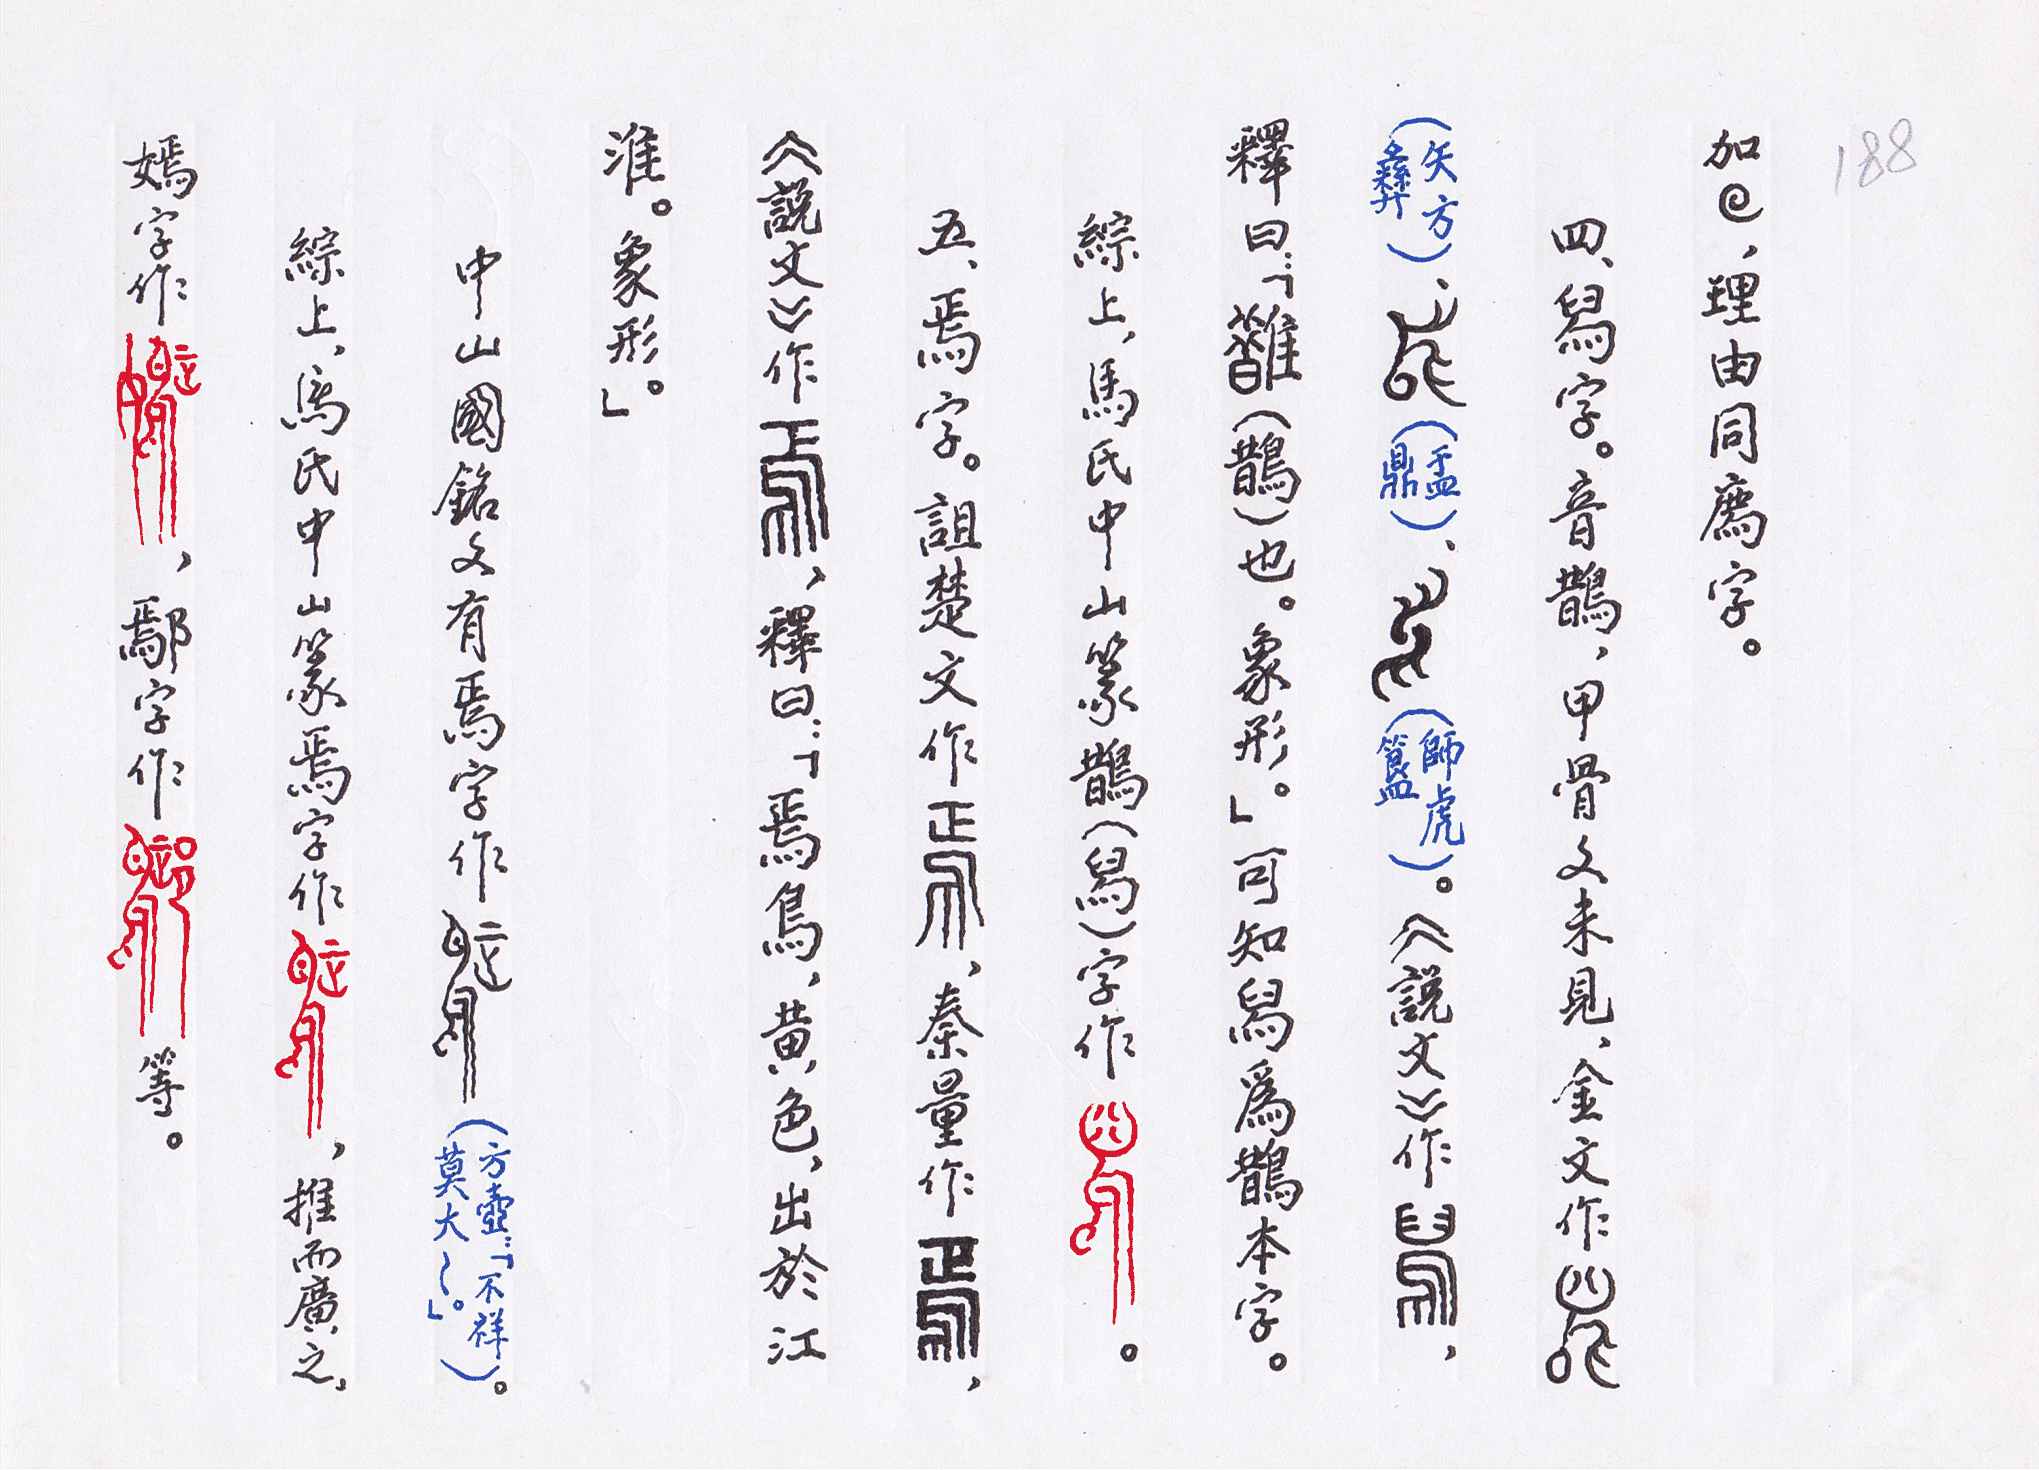 188
加，理由同廌字。
四、舄字。音鵲，甲骨文未見，金文作
（矢方彝）、（盂鼎）、（師虎簋）。《說文》作，
釋曰：「舄，䧿（鵲）也。象形。」可知舄爲鵲本字。
綜上，馬氏中山篆鵲（舄）字作。
五、焉字。詛楚文作，秦量作，
《說文》作，釋曰：「焉鳥，黃色，出於江
淮。象形。」
中山國銘文有焉字作（方壺：「不祥莫大～。」）。
綜上，馬氏中山篆焉字作，推而廣之，
嫣字作，鄢字作等。